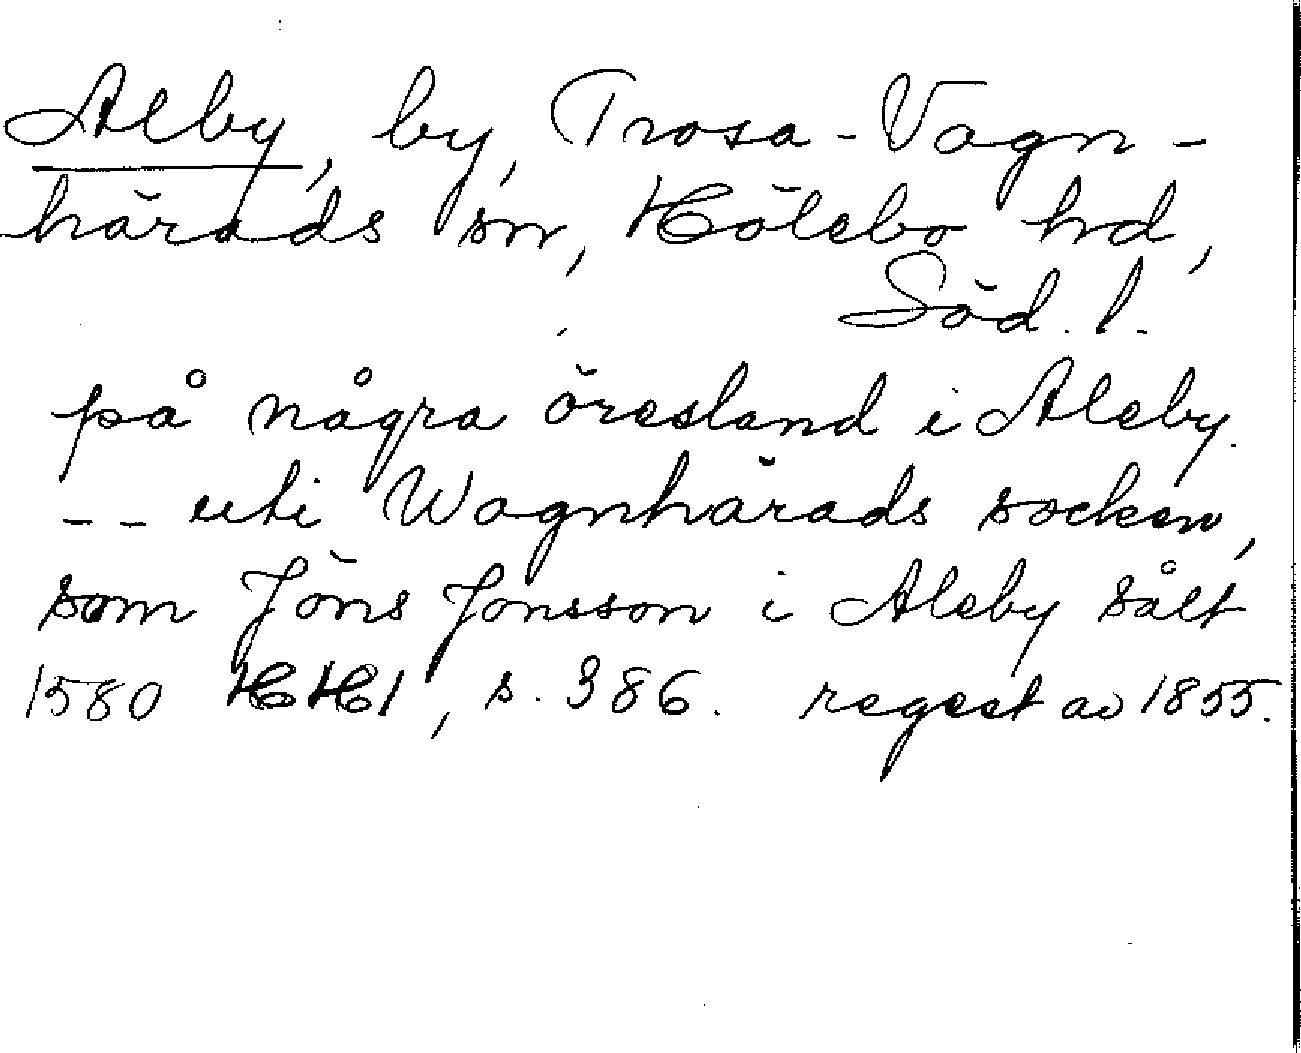 Alby, by, Trosa-Vagn-
härads sn, Hölebo hd,
Söd. l.
på några öresland i Aleby
-- uti Wagnhärads socken,
som Jöns Jonsson i Aleby sålt
1580 HH1, s. 386. regest av 1855.